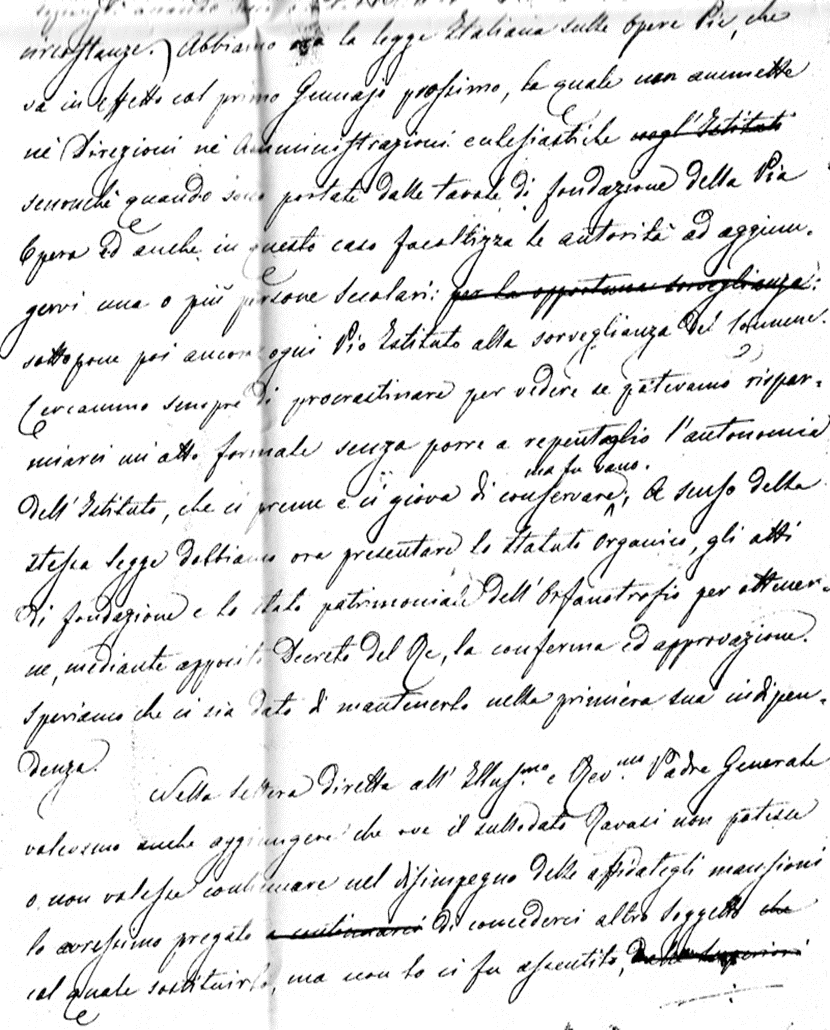 circostanze. Abbiamo ora la legge Italiana sulle Opere Pie, che
va in effetto col primo Gennajo prossimo, la quale non ammette
nè Direzioni nè Amministrazioni eclesiastiche negl'Istituti
senonchè quando sono portate dalle tavole di fondazione della Pia
Opera ed anche in questo caso facoltizza le autorità ad aggiun-
gervi una o più persone secolari: per la opportuna sorveglianza:
sottopone poi ancora ogni Pio Istituto alla sorveglianza del Comune.
Cercammo sempre di procrastinare per vedere se potevamo rispar-
miarci un'atto formale senza porre a repentaglio l'autonomia
ma fu vano.
dell'Istituto, che ci preme e ci giova di conservare; A senso della
stessa legge dobbiamo ora presentare lo statuto Organico, gli atti
di fondazione e lo stato patrimoniale dell'Orfanotrofio per ottener-
ne, mediante apposito Decreto del Re, la conferma ed approvazione.
Speriamo che ci sia dato di mantenerlo nella primiera sua indipen-
denza.
Nella lettera diretta all'Illusmo e Revmo Padre Generale
volevamo anche aggiungere che ove il sullodato Ravasi non potesse
o non volesse continuare nel disimpegno delle affidategli mansioni
lo avressimo pregato a continuarci di concederci altro soggetto che
col quale sostituirlo, ma non lo ci fu assentito, dalla Superiori